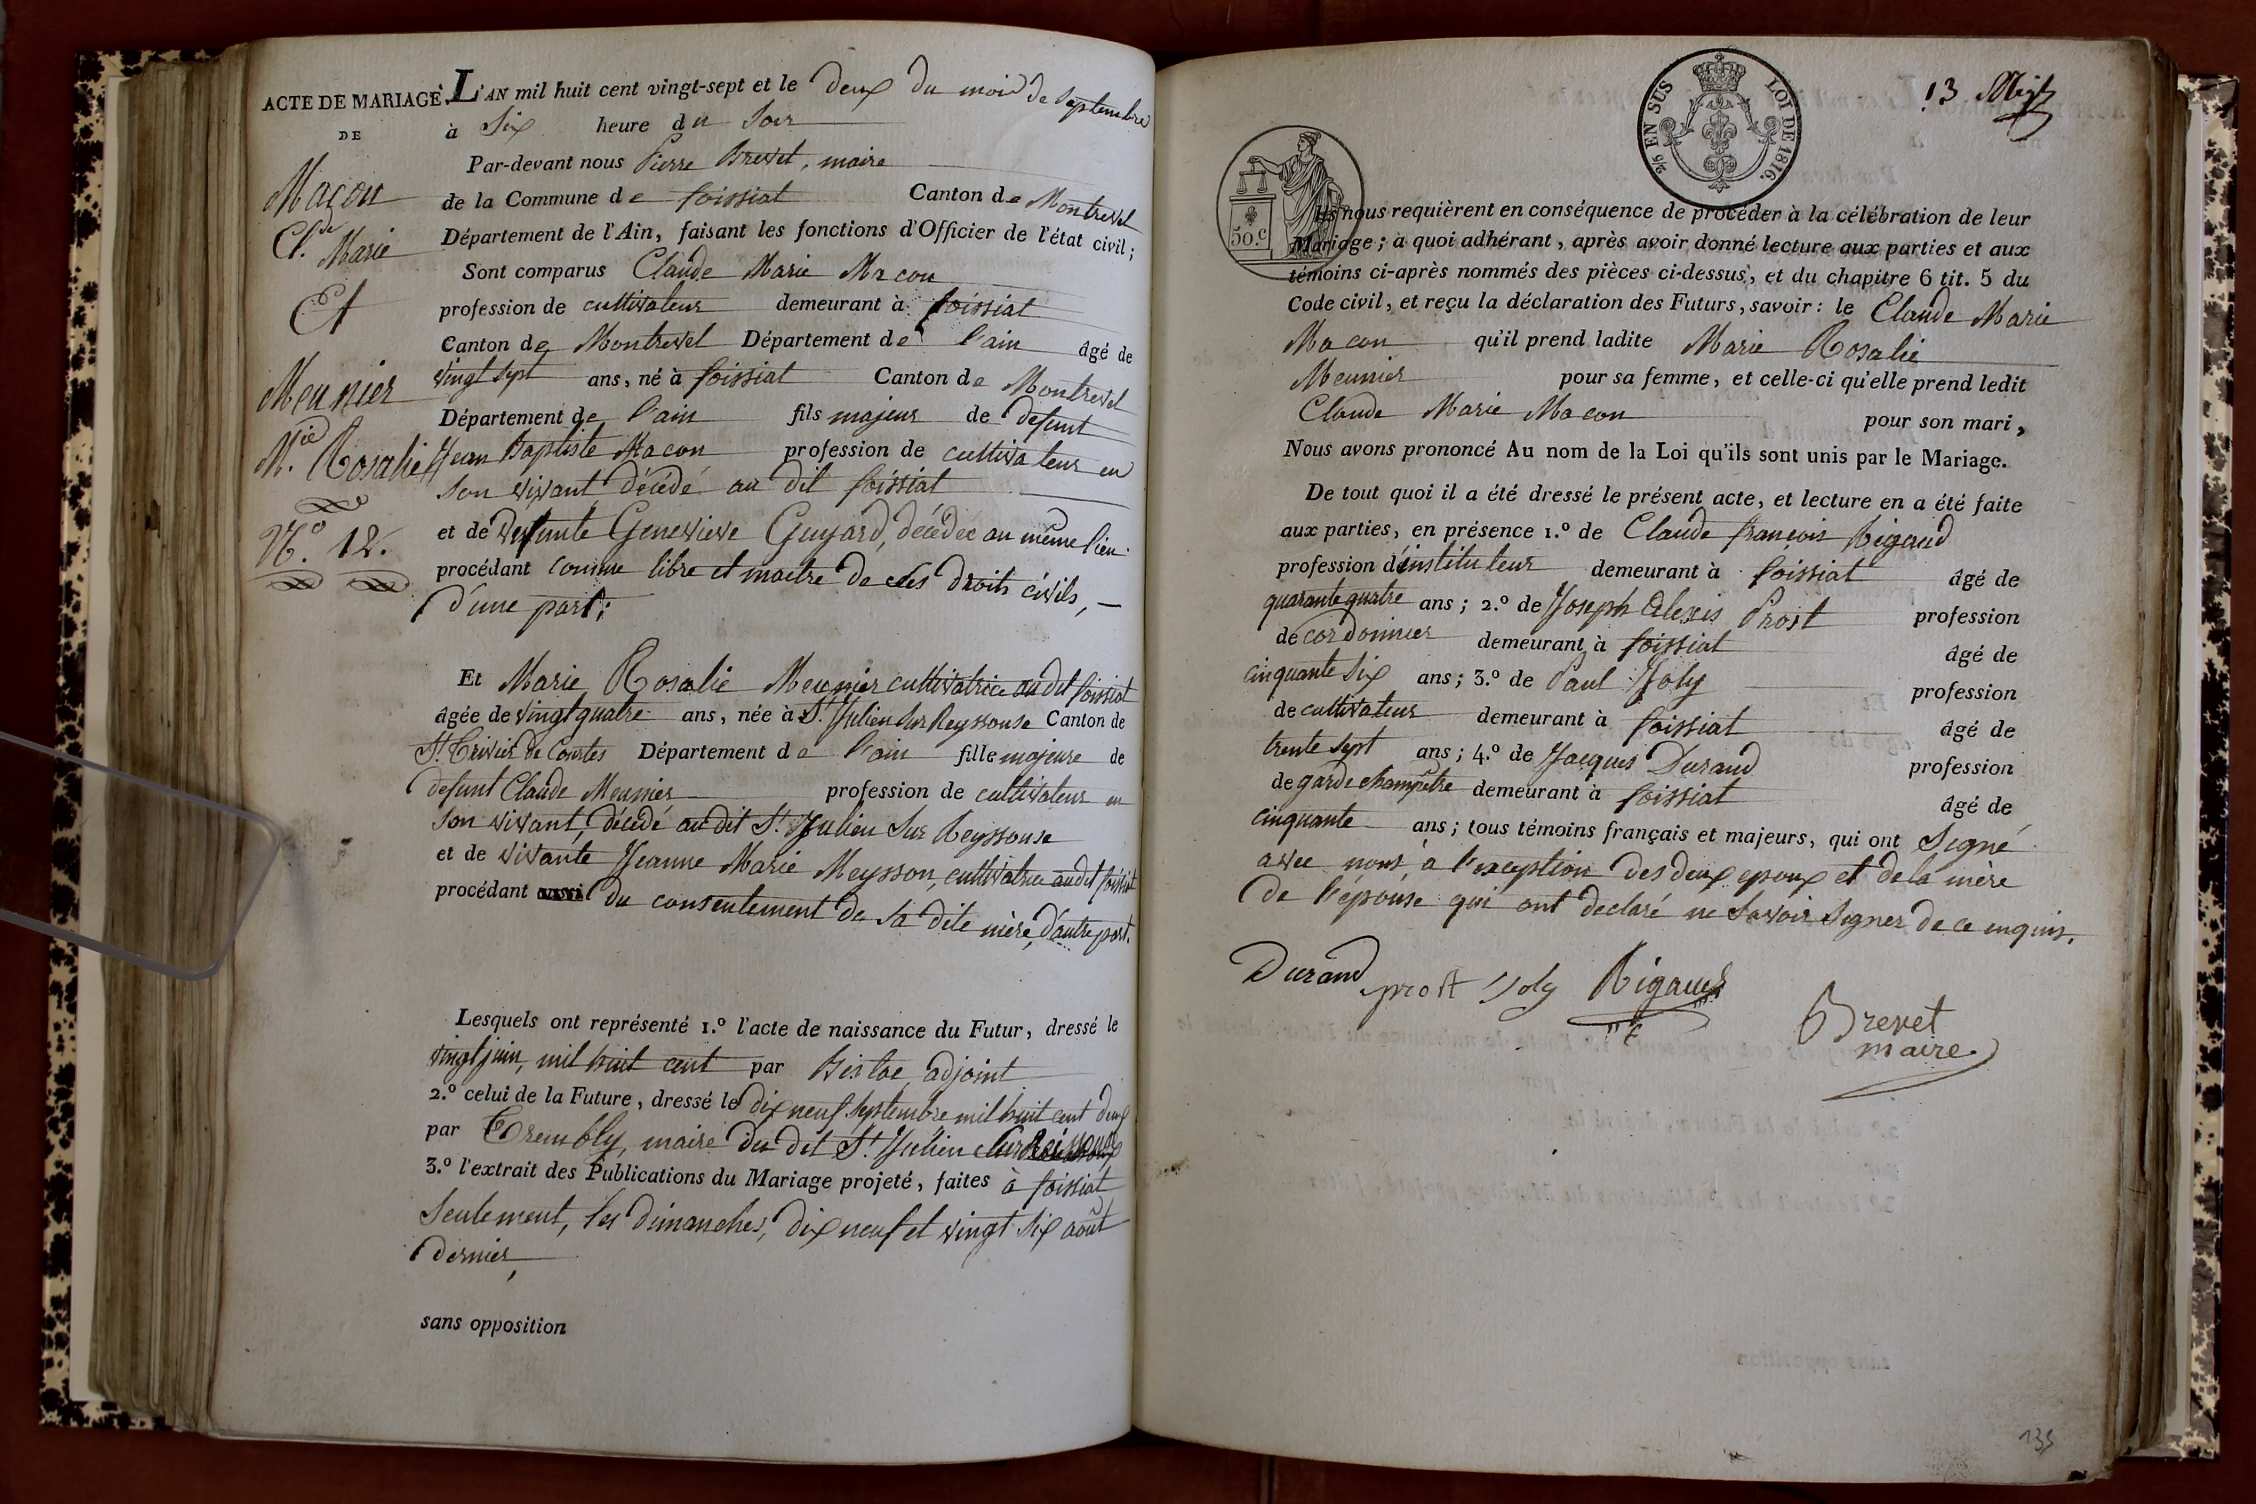 ACTE DE MARIAGE
DE
Macon
Cl.de Marie
Et
Meunier
M.ie Rosalie
N.o 12.
L'AN mil huit cent vingt-sept et le deux du mois de septembre
à Six heure du Soir
Par-devant nous Pierre Brevet, maire
de la Commune de foissiat Canton de Montrevel
Département de l'Ain, faisant les fonctions d'Officier de l'état civil;
Sont comparus Claude Marie Macon
profession de cultivateur demeurant à foissiat
Canton de Montrevel Département de l'ain âgé de
vingt sept ans, né à foissiat Canton de Montrevel
Département de l'ain fils majeur de defunt
Jean Baptiste Macon profession de cultivateur en
son vivant décédé au dit foissiat
et de defunte Genevieve Guyard, décédée au même lieu
procédant comme libre et maitre de ses droits civils,
d'une part;
Et Marie Rosalie Meunier cultivatrice au dit foissiat
âgée de vingt quatre ans, née à St. Julien sur Reyssouse Canton de
St. Trivier de Courtes Département de l'ain fille majeure de
defunt Claude Meunier profession de cultivateur en
son vivant, décédé au dit St. Julien sur Reyssouse
et de vivante Jeanne Marie Meysson, cultivatrice au dit foissiat
procédant du consentement de sa dite mère, d'autre part.
Lesquels ont représenté 1.o l'acte de naissance du Futur, dressé le
vingt juin, mil huit cent par adjoint
2.o celui de la Future, dressé le dix neuf septembre mil huit cent deux
par Trembly, maire du dit St. Julien sur
3.o l'extrait des Publications du Mariage projeté, faites à foissiat
seulement, les dimanches, dix neuf et vingt six août
dernier,
sans opposition
13
2/5 EN SUS LOI DE 1816.
50.c
Ils nous requièrent en conséquence de procéder à la célébration de leur
Mariage; à quoi adhérant, après avoir donné lecture aux parties et aux
témoins ci-après nommés des pièces ci-dessus, et du chapitre 6 tit. 5 du
Code civil, et reçu la déclaration des Futurs, savoir: le Claude Marie
Macon qu'il prend ladite Marie Rosalie
Meunier pour sa femme, et celle-ci qu'elle prend ledit
Claude Marie Macon pour son mari,
Nous avons prononcé Au nom de la Loi qu'ils sont unis par le Mariage.
De tout quoi il a été dressé le présent acte, et lecture en a été faite
aux parties, en présence 1.o de Claude françois Rigaud
profession d'instituteur demeurant à foissiat âgé de
quarante quatre ans; 2.o de Joseph Alexis Prost profession
de cordonnier demeurant à foissiat âgé de
cinquante six ans; 3.o de Paul Joly profession
de cultivateur demeurant à foissiat âgé de
trente sept ans; 4.o de Jacques Durand profession
de garde champêtre demeurant à foissiat âgé de
cinquante ans; tous témoins français et majeurs, qui ont signé
avec nous, à l'exception des deux epoux et de la mère
de l'épouse qui ont declaré ne savoir signer de ce enquis.
Durand prost Joly Rigaud
Brevet
maire
135